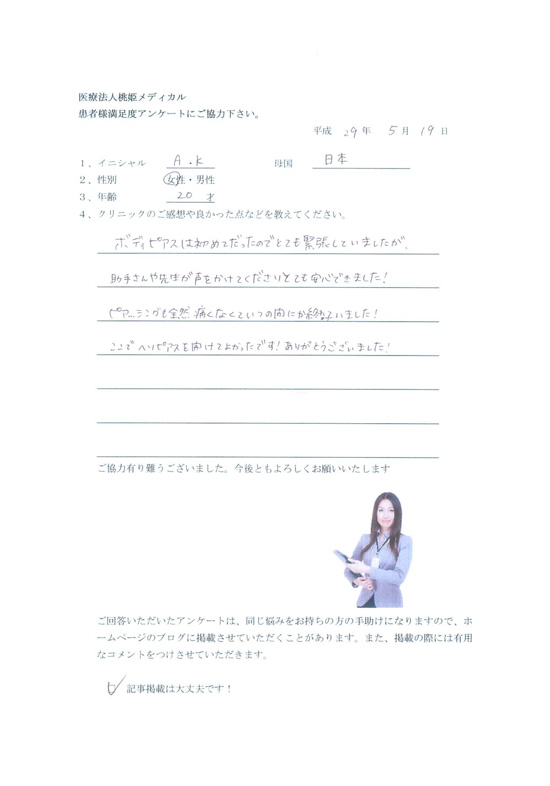 医療法人桃姫メディカル
患者様満足度アンケートにご協力下さい。
平成 29年 5月 19日
1、イニシャル A.K 母国 日本
2、性別 女性・男性
3、年齢 20 才
4、クリニックのご感想や良かった点などを教えてください。
ボディピアスは初めてだったのでとても緊張していましたが、
助手さんや先生が声をかけてくださりとても安心できました!
ピアッシングも全然痛くなくていつの間にか終わっていました!
ここでヘソピアスを開けてよかったです!ありがとうございました!
ご協力有り難うございました。今後ともよろしくお願いいたします
ご回答いただいたアンケートは、同じ悩みをお持ちの方の手助けになりますので、ホ
ームページのブログに掲載させていただくことがあります。また、掲載の際には有用
なコメントをつけさせていただきます。
記事掲載は大丈夫です!